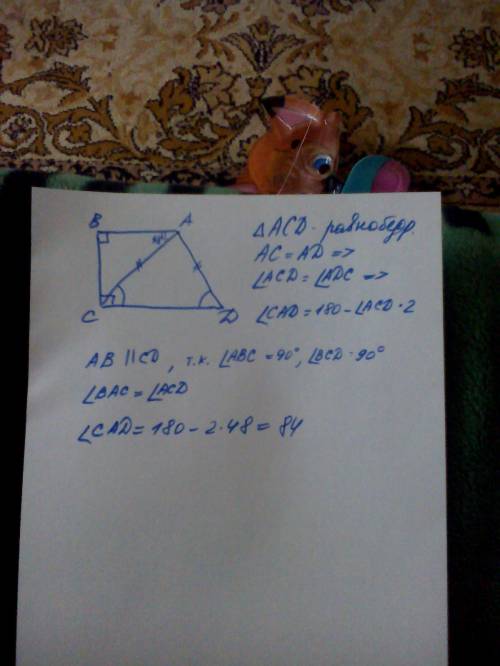 B A
48°
C D
△ACD - равнобедр.
AC = AD =>
∠ACD = ∠ADC =>
∠CAD = 180 - ∠ACD · 2
AB || CD, т.к. ∠ABC = 90°, ∠BCD = 90°
∠BAC = ∠ACD
∠CAD = 180 - 2·48 = 84